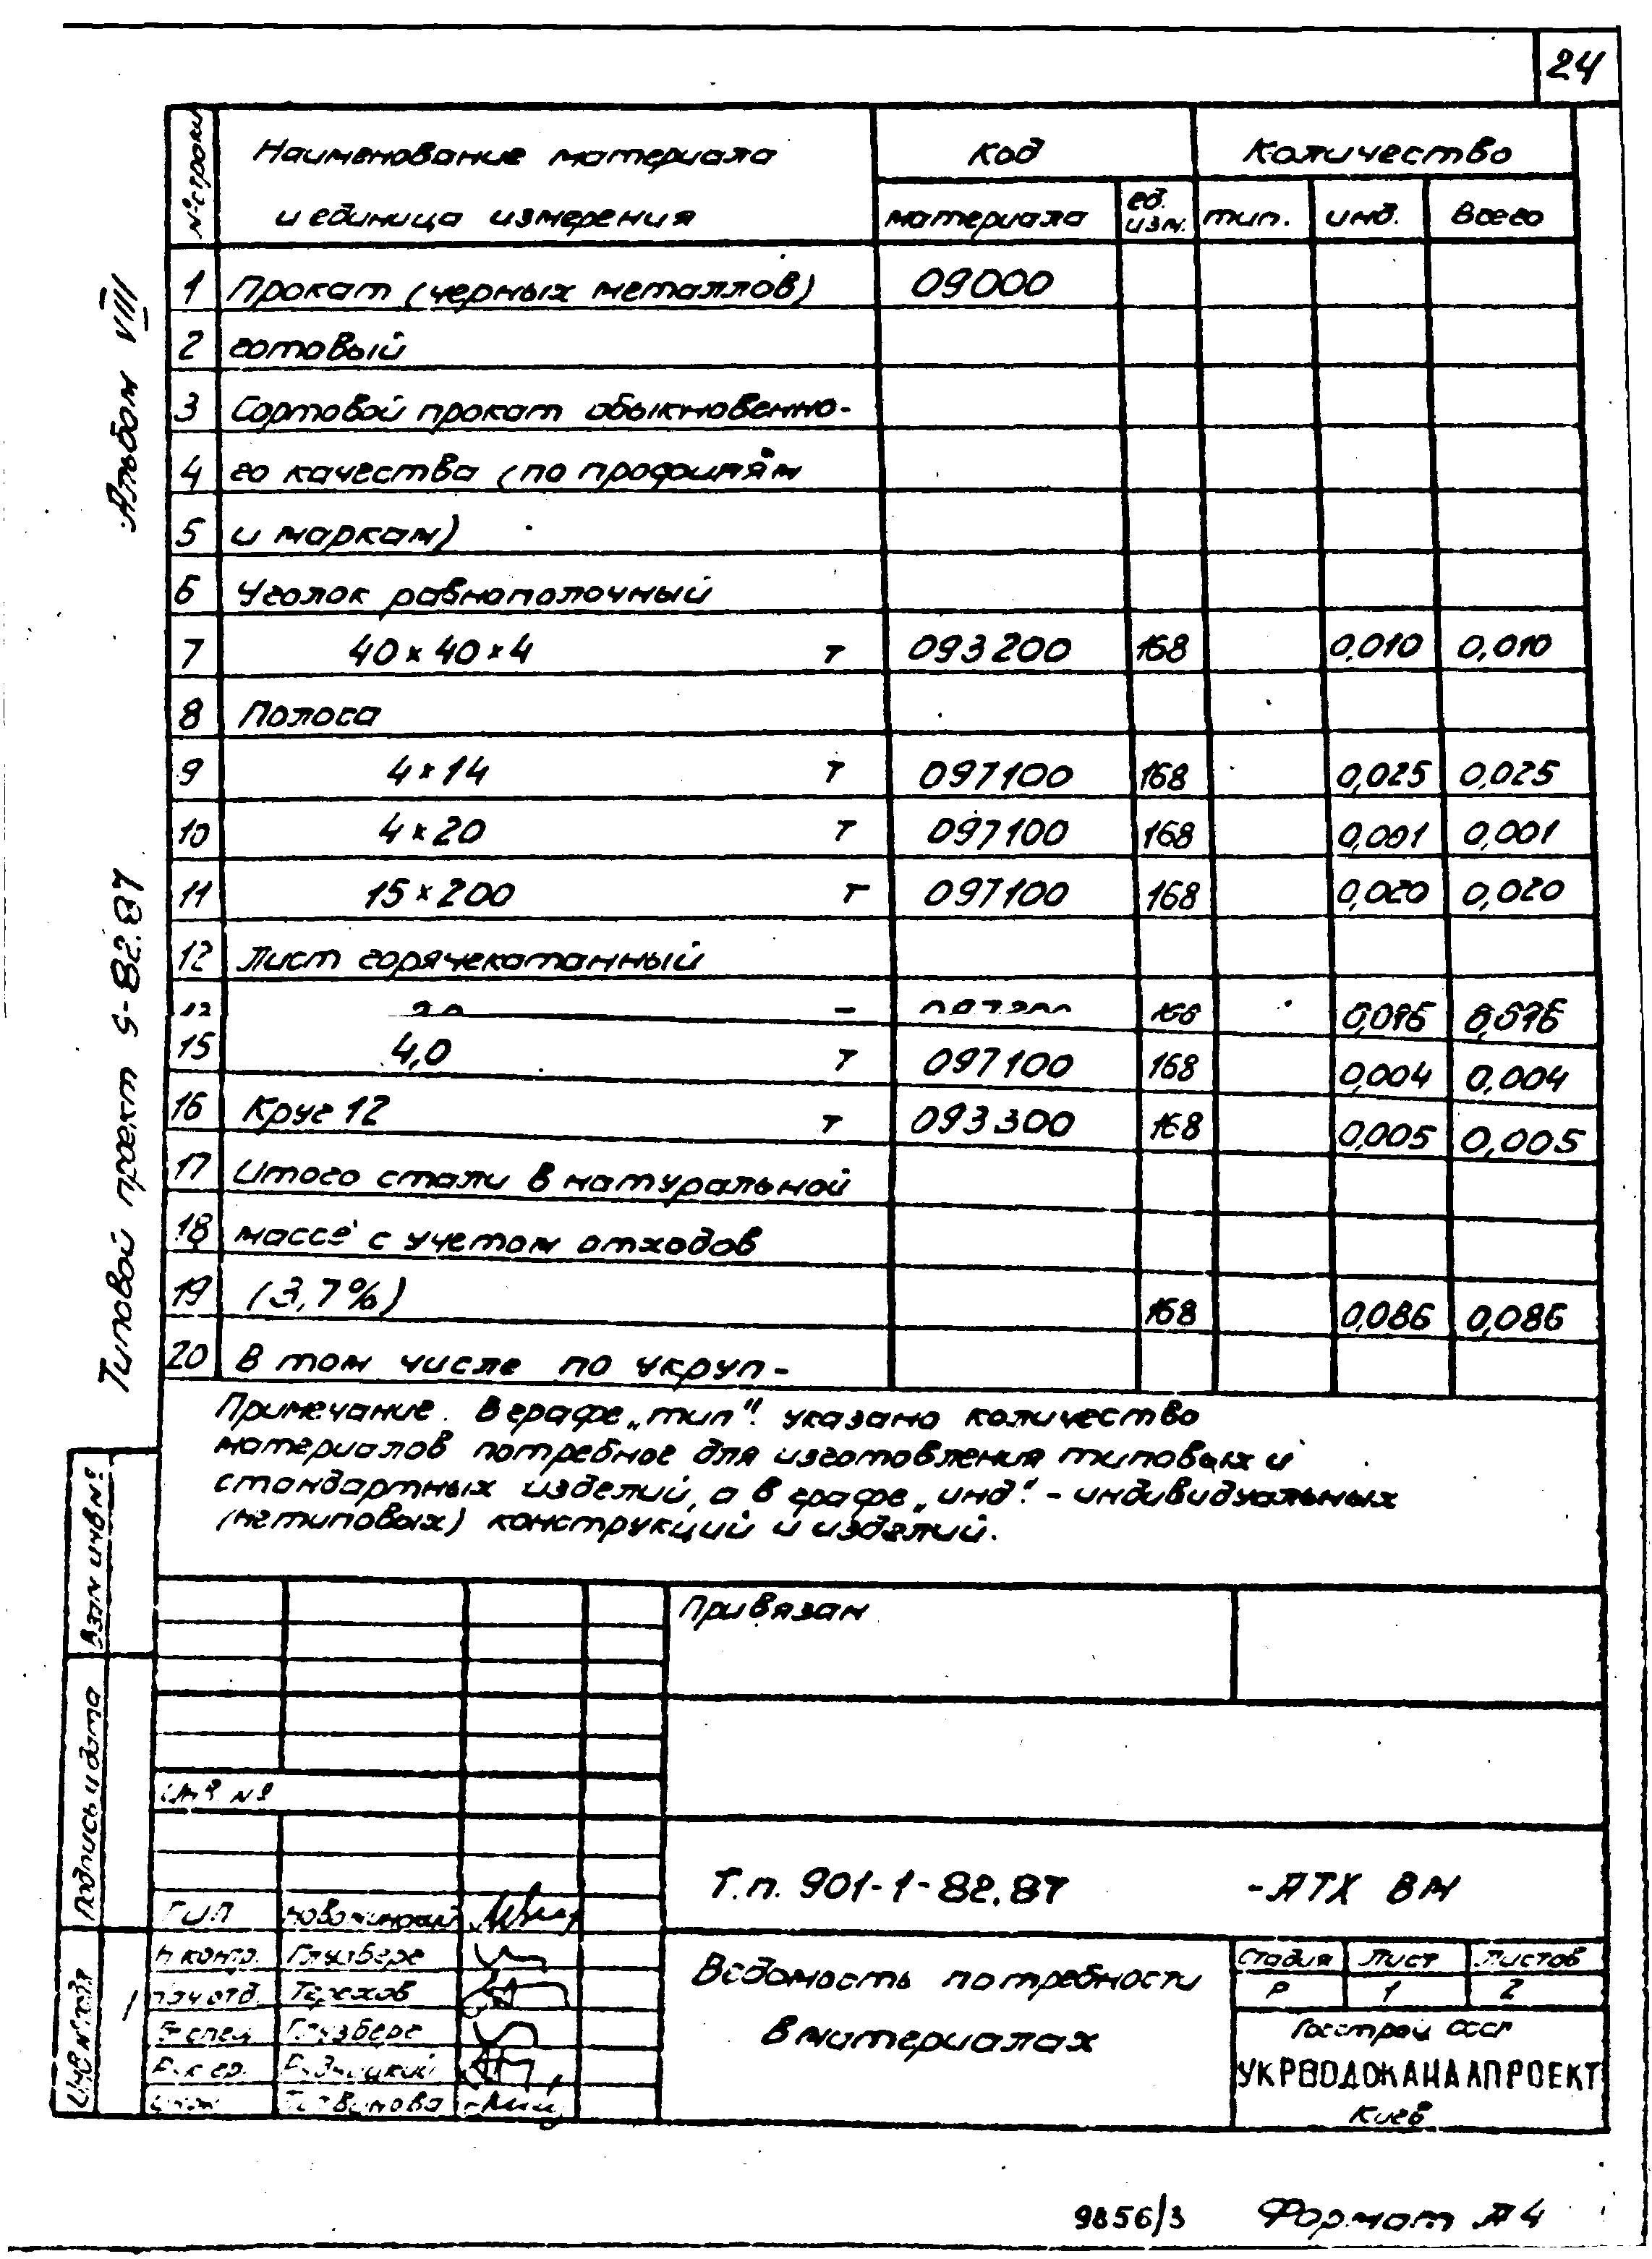 24
№ строки Наименование материала и единица измерения код Количество
материала ед. изм. тип. инд. Всего
1 Прокат (черных металлов) 09000
2 готовый
3 Сортовой прокат обыкновенно-
4 го качества (по профилям
5 и маркам)
6 Уголок равнополочный
7 40 × 40 × 4 т 093200 168 0,010 0,010
8 Полоса
9 4 × 14 т 097100 168 0,025 0,025
10 4 × 20 т 097100 168 0,001 0,001
11 15 × 200 т 097100 168 0,020 0,020
12 Лист горячекатанный
168
15 4,0 т 097100 168 0,004 0,004
16 Круг 12 т 093300 168 0,005 0,005
17 Итого стали в натуральной
18 массе с учетом отходов
19 (3,7%) 168 0,086 0,086
20 В том числе по укруп-
Примечание. В графе „тип". указано количество
материалов потребное для изготовления типовых и
стандартных изделий, а в графе „инд". - индивидуальных
(нетиповых) конструкций и изделий.
Альбом VIII
Типовой проект 9-82.87
Взам инв №
Подпись и дата
Инв № подл
Привязан
Инв №
Т.п. 901-1-82.87 -АТХ ВМ
ГИП
Н.контр. Глузберг
Нач отд. Терехов
Гл спец Глузберг
Рук гр.
Инж
Ведомость потребности
в материалах
Стадия Лист Листов
Р 1 2
Госстрой СССР
УКРВОДОКАНАЛПРОЕКТ
Киев
9856/3 Формат А4